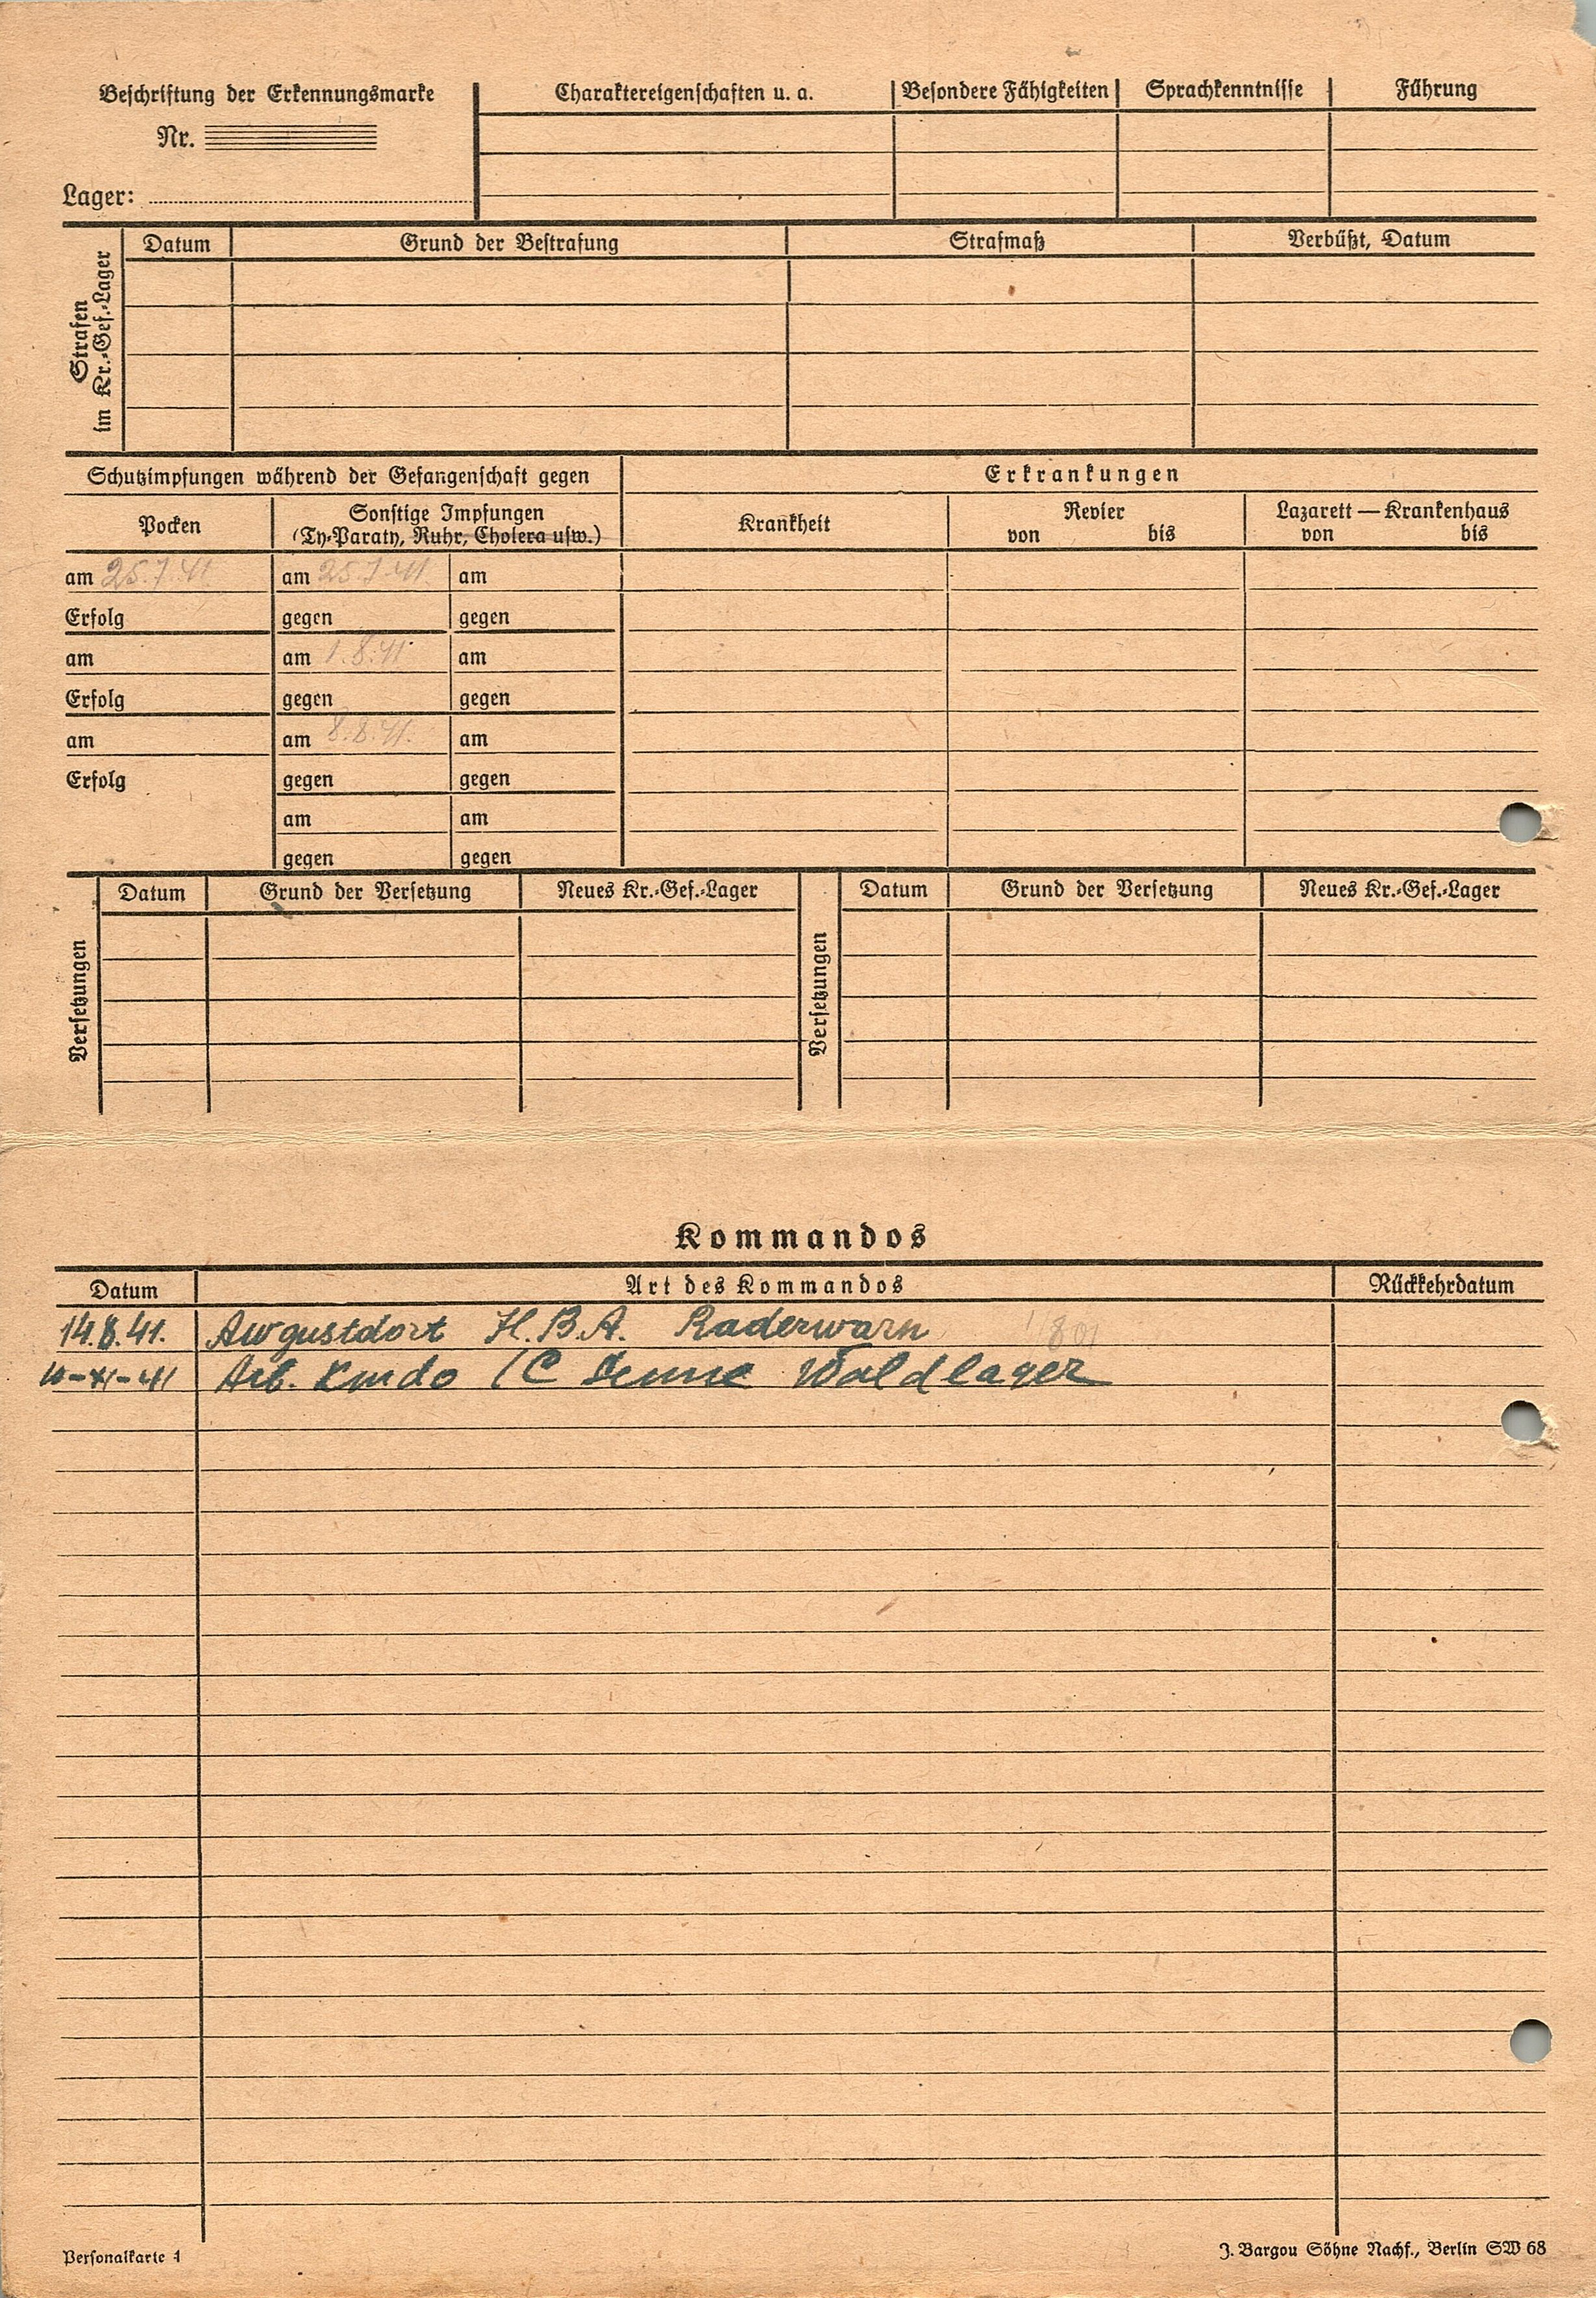 Beschriftung der Erkennungsmarke
Nr.
Lager:
Charaktereigenschaften u. a.
Besondere Fähigkeiten
Sprachkenntnisse
Führung
Strafen
im Kr.-Gef.-Lager
Datum
Grund der Bestrafung
Strafmaß
Verbüßt, Datum
Schutzimpfungen während der Gefangenschaft gegen
Pocken
Sonstige Impfungen
(Ty-Paraty, Ruhr, Cholera usw.)
am 25.7.41 am 25.7.41. am
Erfolg gegen gegen
am am 1.8.41 am
Erfolg gegen gegen
am am 8.8.41. am
Erfolg gegen gegen
am am
gegen gegen
Erkrankungen
Krankheit
Revier
von bis
Lazarett — Krankenhaus
von bis
Versetzungen
Datum Grund der Versetzung Neues Kr.-Gef.-Lager
Versetzungen
Datum Grund der Versetzung Neues Kr.-Gef.-Lager
Kommandos
Datum Art des Kommandos Rückkehrdatum
14.8.41. Awgustdort H.B.A. Raderwarn
10-XI-41 Arb. Kmdo Senne Waldlager
Personalkarte 1
J. Bargou Söhne Nachf., Berlin SW 68